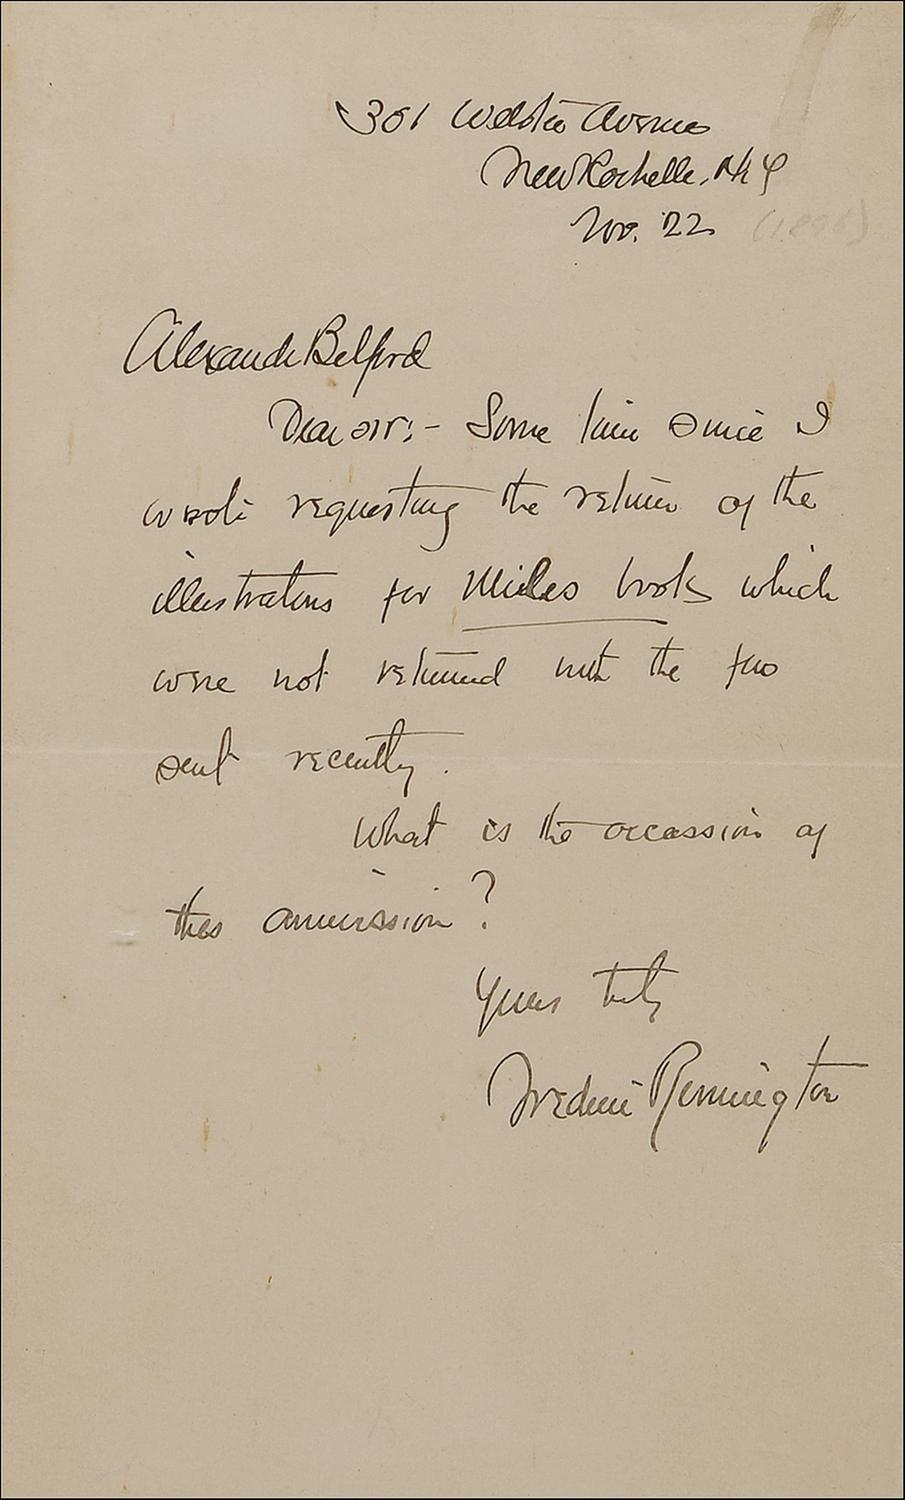 301 Webster Avenue
New Rochelle, N.Y
Nov. 22 (1896)
Alexander Belford
Dear sir:- Some time since I
wrote requesting the return of the
illustrations for Miles book which
were not returned with the two
sent recently.
What is the occassion of
this ommission?
Yours truly
Frederic Remington